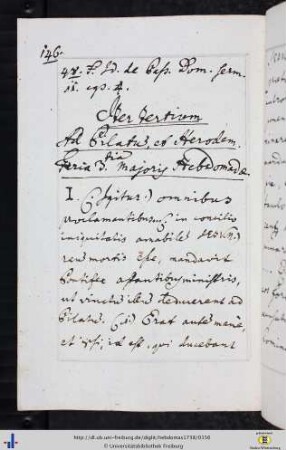 146.
de Pass. Dom. serm.
Iter tertium
Ad Pilatum, et Herodem.
Feria 3tia majoris Hebdomadæ
I. (Igitur) omnibus
proclamantibus in concilio
iniquitatis amabilis
reus mortis esse, mandavit
Pontifex astantibus ministris,
ut vinctus ad
Pilatum. Erat autem mane,
et ipsi, id est, qui ducebant
http://dl.ub.uni-freiburg.de/diglit/hebdomas1738/0156
© Universitätsbibliothek Freiburg